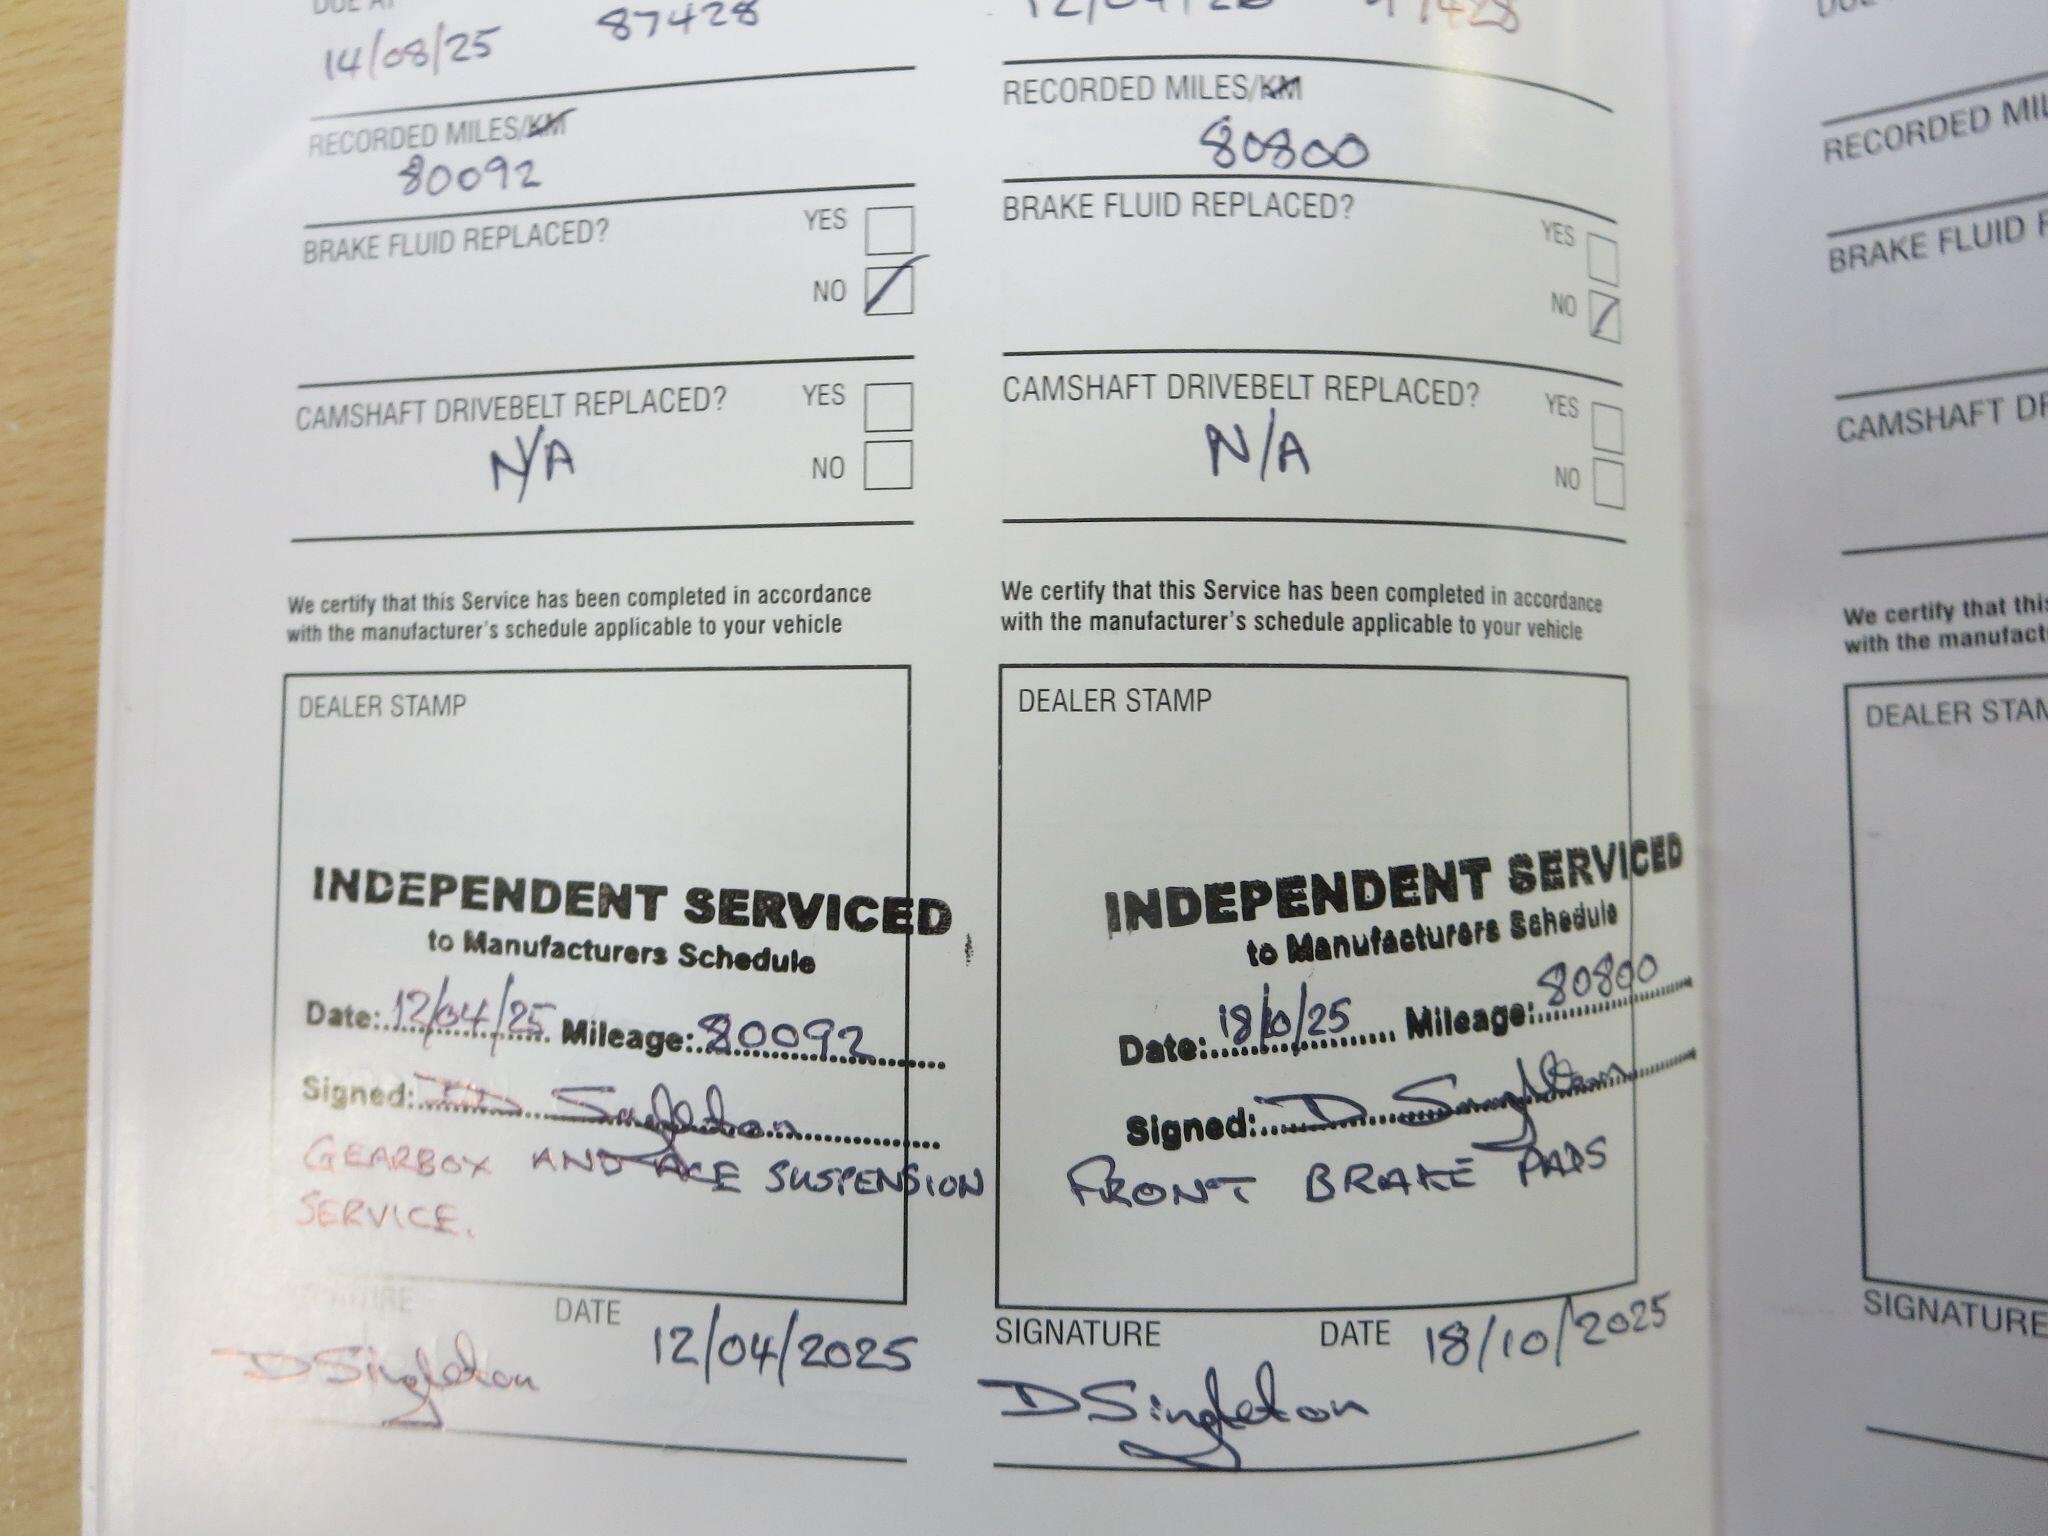 DUE AT
14/08/25 87428
RECORDED MILES/KM
80092
BRAKE FLUID REPLACED?
YES
NO
CAMSHAFT DRIVEBELT REPLACED?
YES
N/A
NO
We certify that this Service has been completed in accordance
with the manufacturer's schedule applicable to your vehicle
DEALER STAMP
INDEPENDENT SERVICED
to Manufacturers Schedule
Date: 12/04/25 Mileage: 80092
Signed: D Singleton
GEARBOX AND ACE SUSPENSION
SERVICE.
SIGNATURE DATE 12/04/2025
D Singleton
RECORDED MILES/KM
80800
BRAKE FLUID REPLACED?
YES
NO
CAMSHAFT DRIVEBELT REPLACED?
YES
N/A
NO
We certify that this Service has been completed in accordance
with the manufacturer's schedule applicable to your vehicle
DEALER STAMP
INDEPENDENT SERVICED
to Manufacturers Schedule
Date: 18/10/25 Mileage: 80800
Signed: D Singleton
FRONT BRAKE PADS
SIGNATURE DATE 18/10/2025
D Singleton
RECORDED MIL
BRAKE FLUID
CAMSHAFT DR
We certify that this
with the manufact
DEALER STAM
SIGNATURE